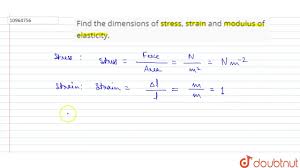 10964756
Find the dimensions of stress, strain and modulus of
elasticity.
Stress : Stress = Force/Area = N/m² = N m⁻²
Strain: Strain = Δl/l = m/m = 1
doubtnut